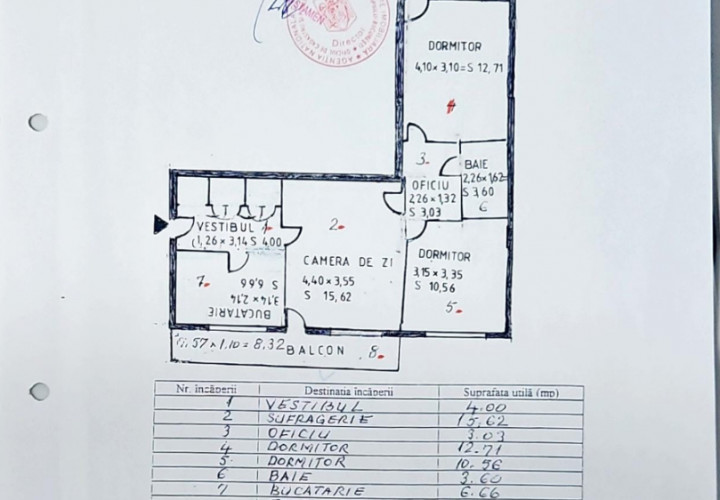 DORMITOR
4,10 x 3,10 = S 12,71
4
3.
BAIE
2,26 x 1,62
S 3,60
6
OFICIU
2,26 x 1,32
S 3,03
VESTIBUL 1.
1,26 x 3,14 S 4,00
2.
CAMERA DE ZI
4,40 x 3,55
S 15,62
DORMITOR
3,15 x 3,35
S 10,56
5.
7.
BUCATARIE
3,14 x 2,14
S 6,66
7.57 x 1.10 = 8.32 BALCON 8.
Nr. încăperii Destinația încăperii Suprafața utilă (mp)
1 VESTIBUL 4.00
2 SUFRAGERIE 15,62
3 OFICIU 3.03
4 DORMITOR 12.71
5 DORMITOR 10.56
6 BAIE 3.60
7 BUCATARIE 6.66